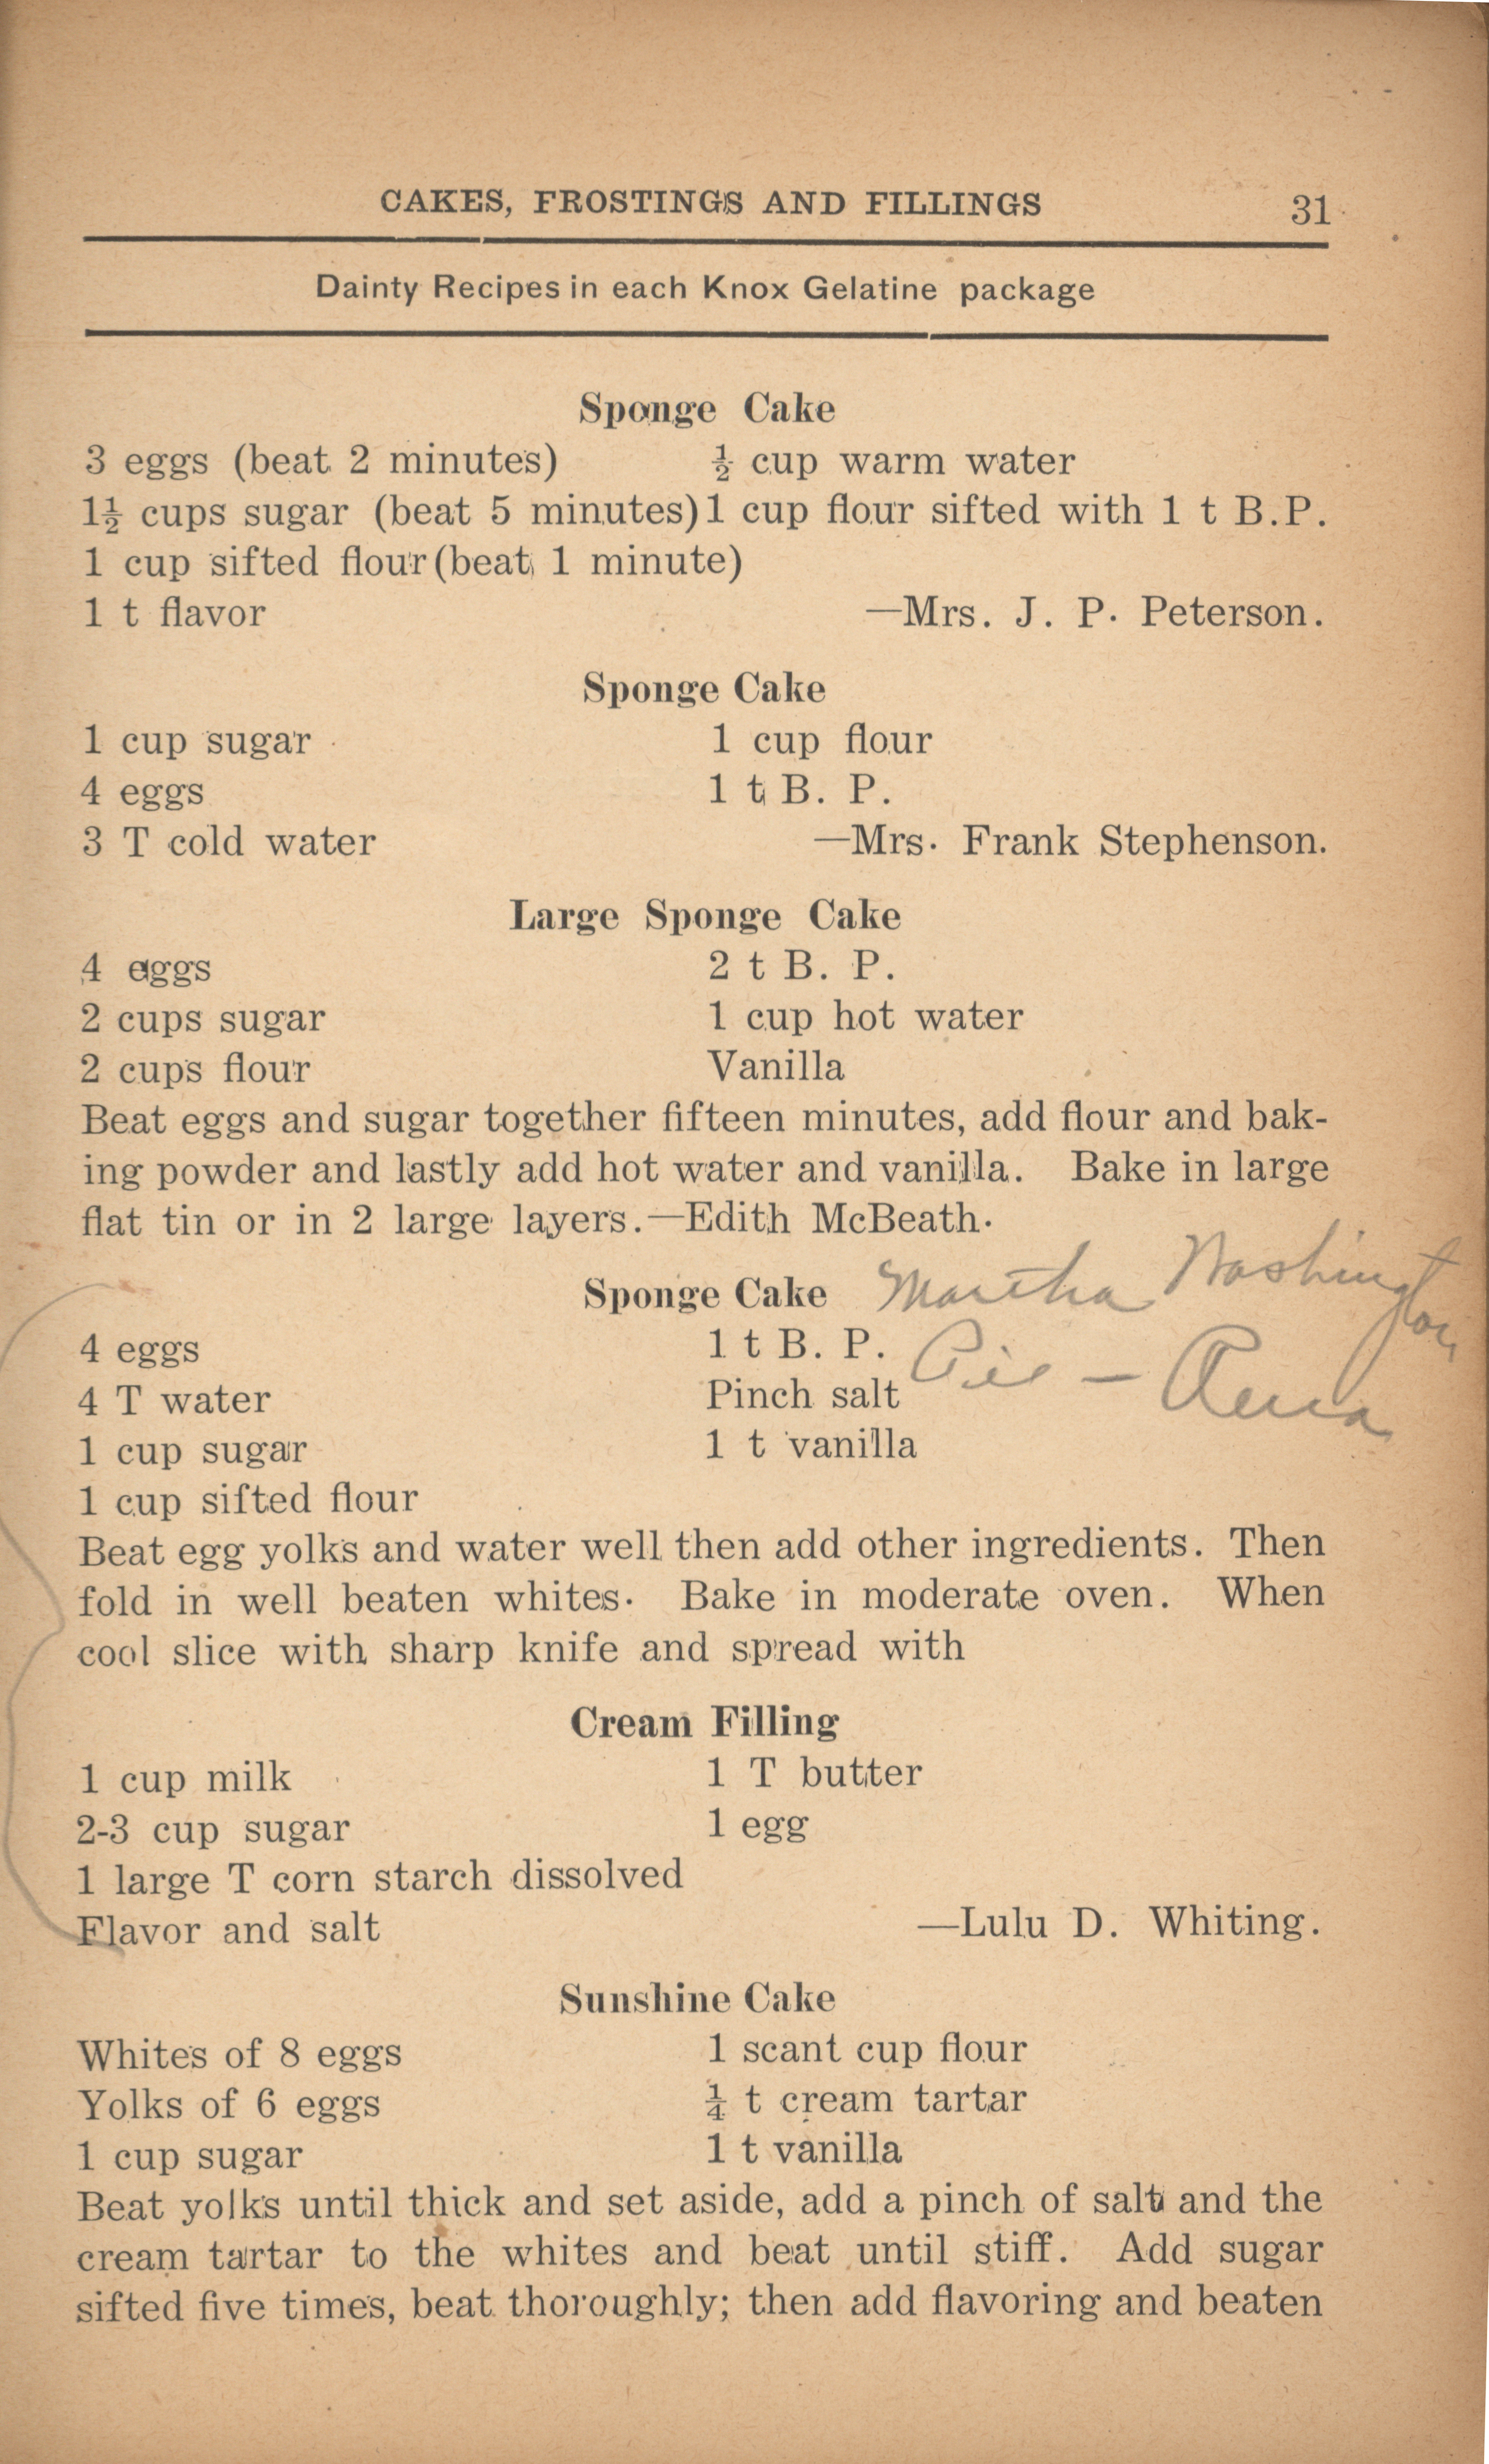 CAKES, FROSTINGS AND FILLINGS 31
Dainty Recipes in each Knox Gelatine package
Sponge Cake
3 eggs (beat 2 minutes) ½ cup warm water
1½ cups sugar (beat 5 minutes) 1 cup flour sifted with 1 t B.P.
1 cup sifted flour (beat 1 minute)
1 t flavor —Mrs. J. P. Peterson.
Sponge Cake
1 cup sugar 1 cup flour
4 eggs 1 t B. P.
3 T cold water —Mrs. Frank Stephenson.
Large Sponge Cake
4 eggs 2 t B. P.
2 cups sugar 1 cup hot water
2 cups flour Vanilla
Beat eggs and sugar together fifteen minutes, add flour and bak-
ing powder and lastly add hot water and vanilla. Bake in large
flat tin or in 2 large layers.—Edith McBeath.
Sponge Cake Martha Washington
4 eggs 1 t B. P. Pie –
4 T water Pinch salt
1 cup sugar 1 t vanilla
1 cup sifted flour
Beat egg yolks and water well then add other ingredients. Then
fold in well beaten whites. Bake in moderate oven. When
cool slice with sharp knife and spread with
Cream Filling
1 cup milk 1 T butter
2-3 cup sugar 1 egg
1 large T corn starch dissolved
Flavor and salt —Lulu D. Whiting.
Sunshine Cake
Whites of 8 eggs 1 scant cup flour
Yolks of 6 eggs ¼ t cream tartar
1 cup sugar 1 t vanilla
Beat yolks until thick and set aside, add a pinch of salt and the
cream tartar to the whites and beat until stiff. Add sugar
sifted five times, beat thoroughly; then add flavoring and beaten